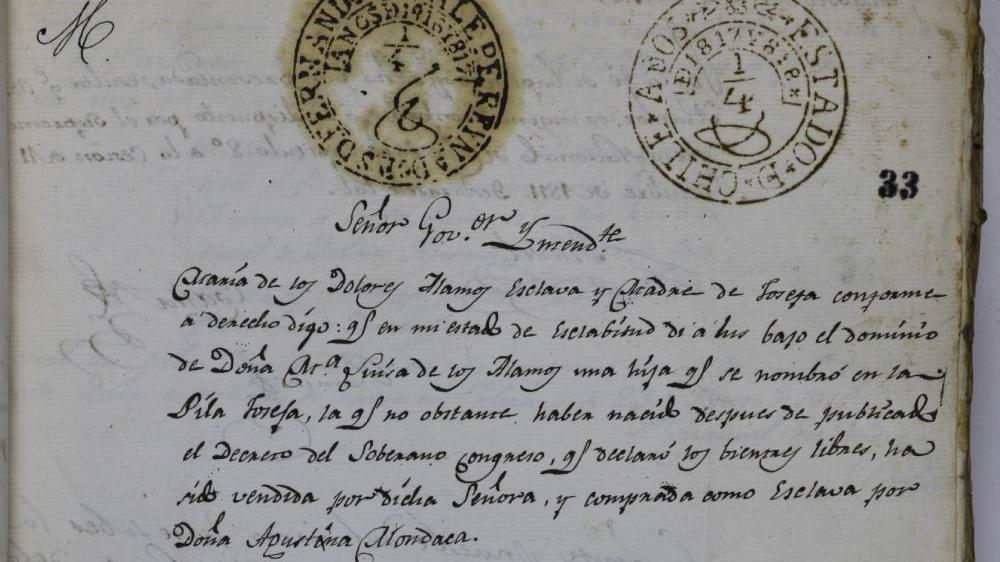 M.
FERNANDO
REYNA
1/4
ESTADO D CHILE
AÑOS
D 1817 Y 818
1/4
33
Señor Gov.or Yntend.te
Maria de los Dolores Alamos Esclava y Madre de Josefa conforme
a derecho digo: qe en mi estado de Esclabitud di a lus bajo el dominio
de Doña Ma Luisa de los Alamos una hija qe se nombró en la
Pila Josefa, la qe no obstante haber nacido despues de publicado
el Decreto del Soberano Congreso, qe declaró los bientres libres, ha
sido vendida por dicha Señora, y comprada como Esclava por
Doña Agustina Mondaca.